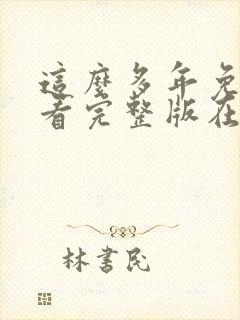 這麼多年免
看完整版在
林書民